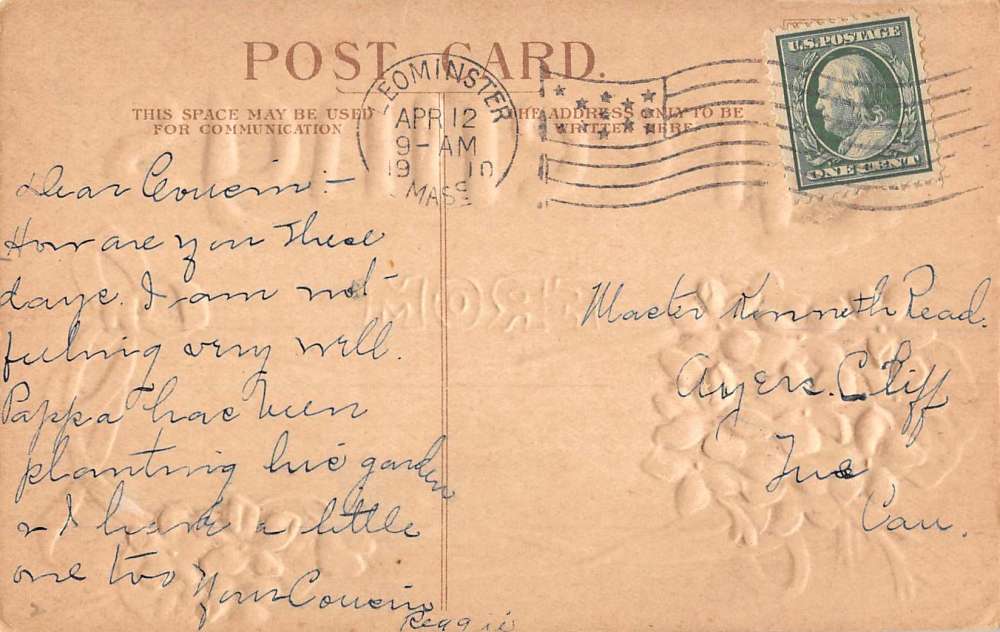 POST CARD.
THIS SPACE MAY BE USED
FOR COMMUNICATION
THE ADDRESS ONLY TO BE
WRITTEN HERE
LEOMINSTER
APR 12
9-AM
1910
MASS
U.S. POSTAGE
ONE CENT
Dear Cousin:-
How are you these
days. I am not
feeling very well.
Pappa has been
planting his garden
& I have a little
one too
Your Cousin
Reggie
Master Kenneth Read.
Ayers. Cliff
Que
Can.
FROM